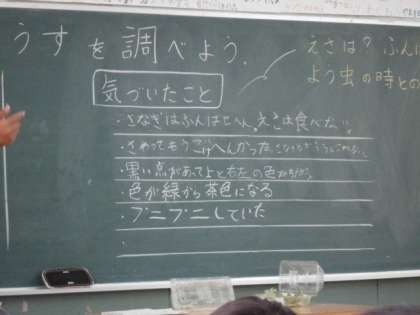 うすを調べよう。
えさは？ふん
よう虫の時との
気づいたこと
・さなぎはふんはせん。えさは食べない。
・さわってもうごけへんかった
・黒い点があって上と右左の色がちがう。
・色が緑から茶色になる
・プニプニしていた